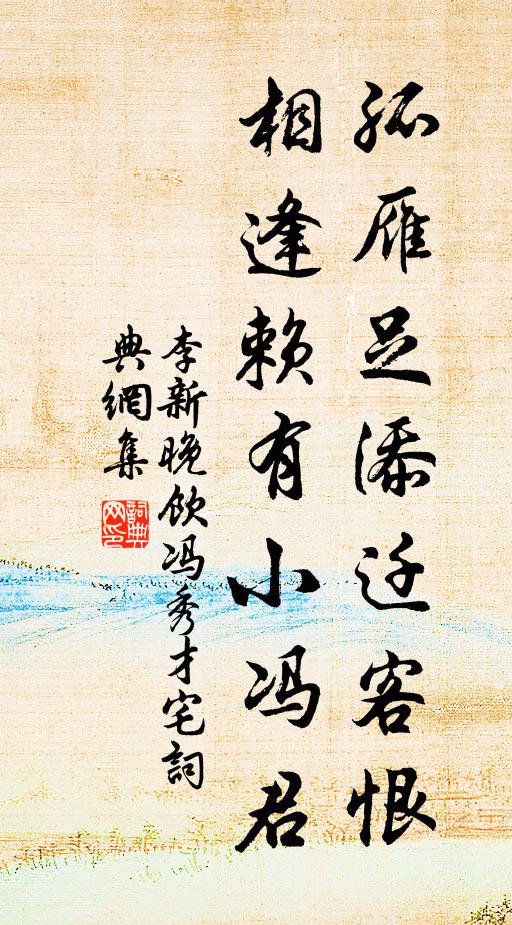 孤雁足添迁客恨
相逢赖有小冯君
李新晚饮冯秀才宅詞
典網集
詞典
网印